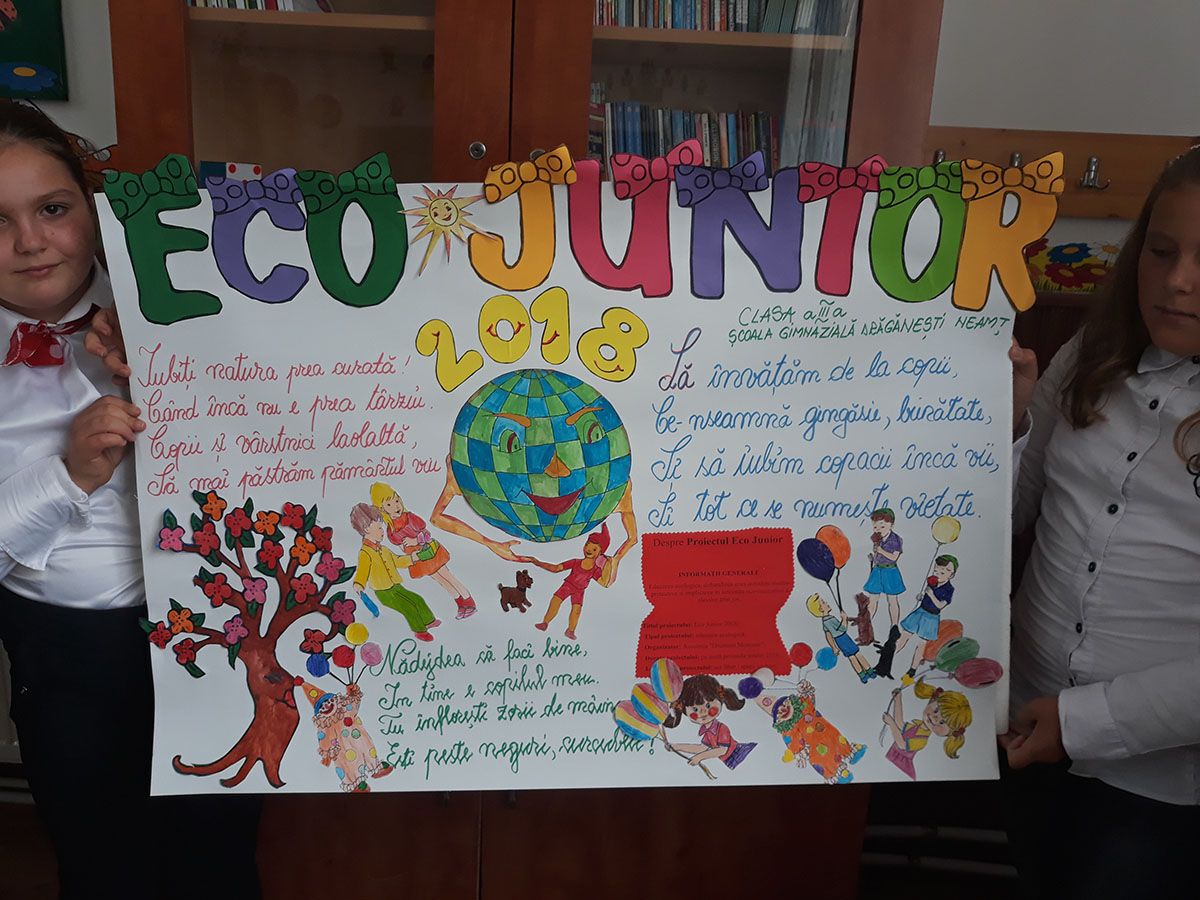 ECO JUNIOR
2018
CLASA a III a
ȘCOALA GIMNAZIALĂ NEAMȚ
Iubiti natura prea curată!
Când încă nu e prea târziu.
Copii și vârstnici laolaltă,
Să mai păstrăm pământul viu
Să învățăm de la copii,
Ce-nseamnă gingășie, bunătate,
Și să iubim copacii încă vii,
Și tot ce se numește vietate.
Despre Proiectul Eco Junior
INFORMAȚII GENERALE
Titlul proiectului: Eco Junior
Tipul proiectului: educație ecologică
Organizator: Asociația
proiectului:
Nădejdea să faci bine,
In tine e copilul meu.
Tu înflorești zorii de mâine
Ești peste neguri, curcubeu!